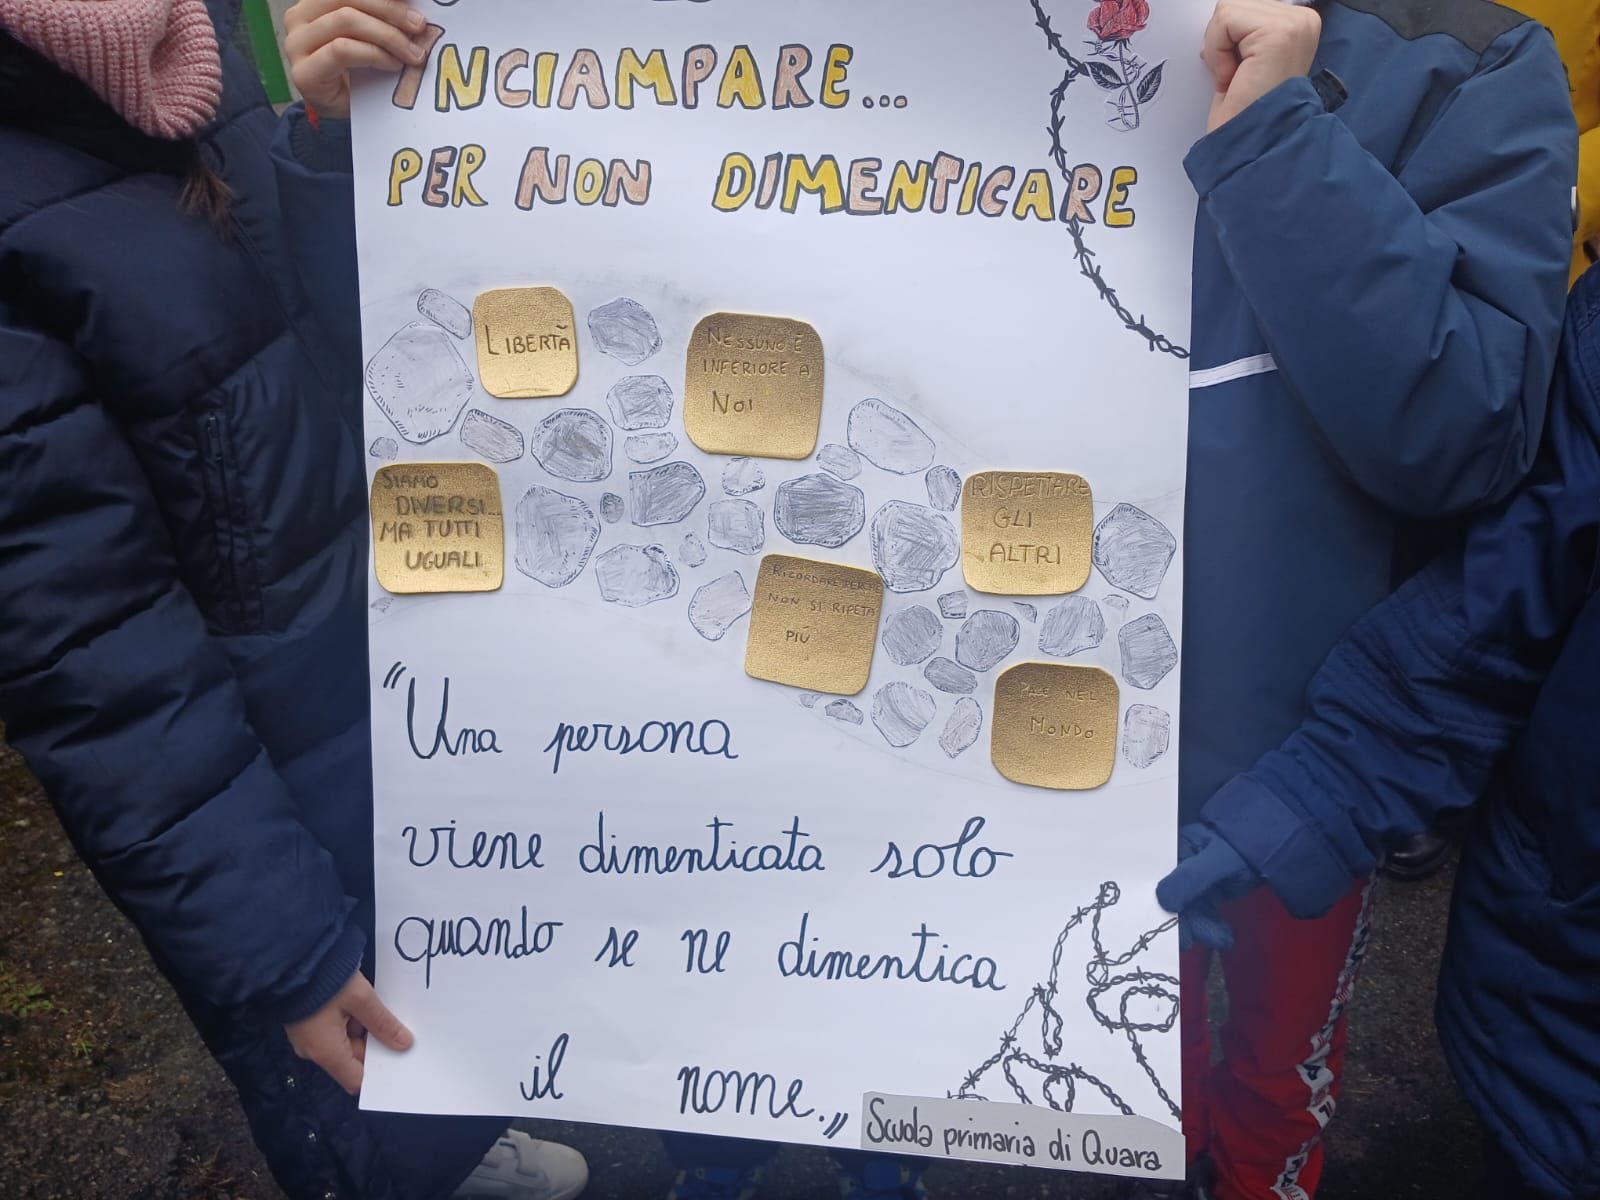 INCIAMPARE...
PER NON DIMENTICARE
LIBERTÀ
NESSUNO È
INFERIORE A
NOI
SIAMO
DIVERSI...
MA TUTTI
UGUALI
RISPETTARE
GLI
ALTRI
RICORDARE PERCHÈ
NON SI RIPETA
PIÚ
PACE NEL
MONDO
"Una persona
viene dimenticata solo
quando se ne dimentica
il nome."
Scuola primaria di Quara